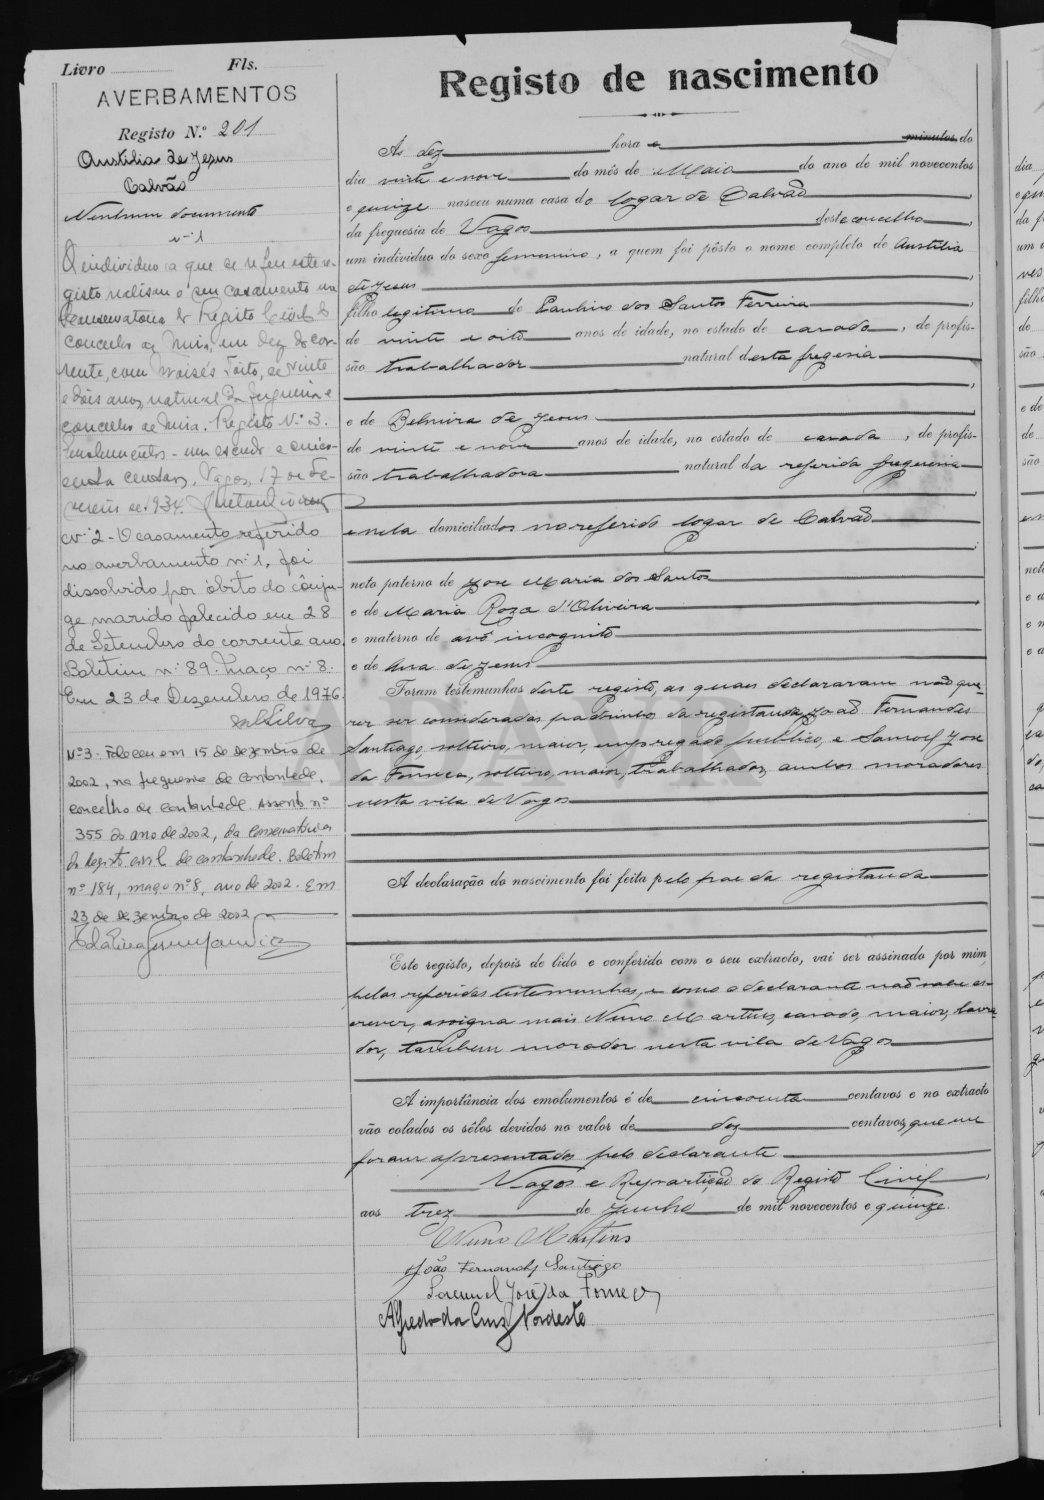 Livro Fls.
AVERBAMENTOS
Registo N.º 201
Austilia de Jesus
Calvão
Nenhum documento
nº 1
O individuo a que se refere este re-
gisto realisou o seu casamento na
Conservatoria do Registo Civil do
concelho de Mira, em dez do cor-
rente, com Moisés Toito, de vinte
e dois anos, natural da freguesia e
concelho de Mira. Registo Nº 3.
Emolumentos - um escudo e cinco-
enta centavos. Vagos, 17 de Fe-
vereiro de 1934.
Nº 2 - O casamento referido
no averbamento nº 1, foi
dissolvido por óbito do cônju-
ge marido falecido em 28
de Setembro do corrente ano.
Boletim nº 89. Maço nº 8.
Em 23 de Dezembro de 1976.
Silva
Nº 3 - Faleceu em 15 de dezembro de
2002, na freguesia de Cantanhede,
concelho de Cantanhede. Assento nº
355 do ano de 2002, da Conservatória
do Registo Civil de Cantanhede. Boletim
nº 184, maço nº 8, ano de 2002. Em
23 de dezembro de 2002
Registo de nascimento
Ás dez hora e minutos do
dia vinte e nove do mês de Maio do ano de mil novecentos
e quinze nasceu numa casa do logar de Calvão
da freguesia de Vagos deste concelho,
um individuo do sexo femenino, a quem foi pôsto o nome completo de Austilia
de Jesus
filho legitimo de Cantiro dos Santos Ferreira
de vinte e oito anos de idade, no estado de casado, de profis-
são trabalhador natural desta freguesia
e de Belmira de Jesus
de vinte e nove anos de idade, no estado de casada, de profis-
são trabalhadora natural da referida freguesia
e nela domiciliados no referido logar de Calvão
neto paterno de José Maria dos Santos
e de Maria Roza d'Oliveira
e materno de avô incognito
e de Ana de Jesus
Foram testemunhas deste registo, as quaes declararam não que-
rer ser consideradas padrinhos da registanda, João Fernandes
Santiago, solteiro, maior, empregado publico, e Samoel José
da Fonseca, solteiro, maior, trabalhador, ambos moradores
nesta vila de Vagos
A declaração do nascimento foi feita pelo pae da registanda
Este registo, depois de lido e conferido com o seu extracto, vai ser assinado por mim,
pelas referidas testemunhas, e como o declarante não sabe es-
crever, assigna mais Nuno Martins, casado, maior, lavra-
dor, tambem morador nesta vila de Vagos
A importância dos emolumentos é de cincoenta centavos e no extracto
vão colados os sêlos devidos no valor de dez centavos, que me
foram apresentados pelo declarante
Vagos e Repartição do Registo Civil,
aos trez de Junho de mil novecentos e quinze.
Nuno Martins
João Fernandes Santiago
Samuel José da Fonseca
Alfredo da Cruz Nordeste
ADAVR